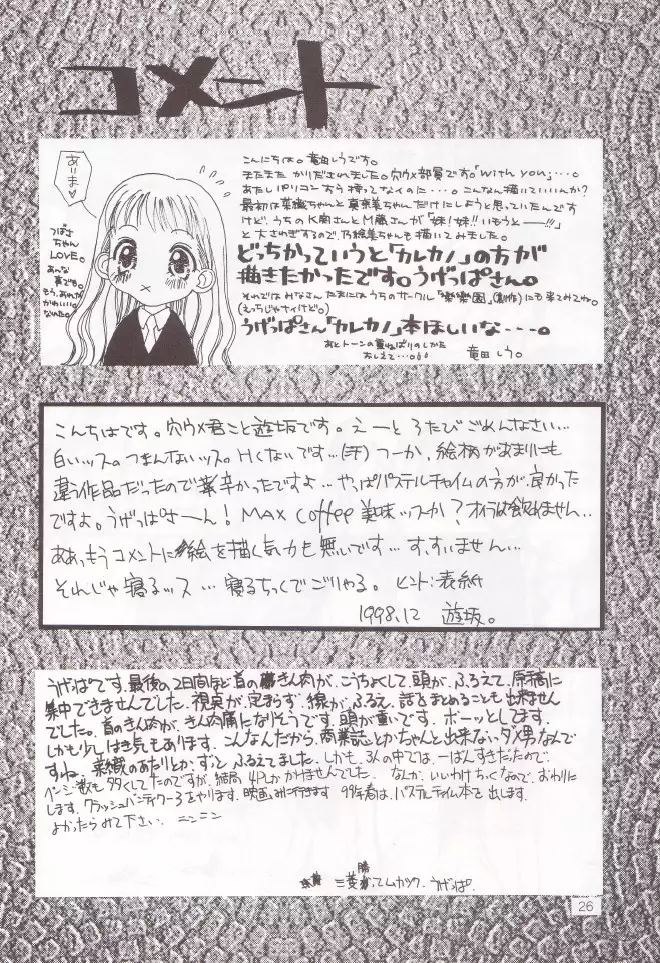 コメント
ありま♥
つばさ
ちゃん
LOVE。
あんな
妻でも。
もう、あんな
かわいいい
ないた。
こんにちは。竜田しうです。
またまた かりだされました。穴ウメ部員です。「with you」・・・。
あたしパソコンすら持ってなイのに・・・。こんなん描いていいんか?
最初は菜織ちゃんと真奈美ちゃんだけにしようと思っていたんです
けど、うちのK崗さんとM蔵さんが「妹!妹!!いもうとー!!!」
と大さわぎするので、乃絵美ちゃんも描いてみました。
どっちかっていうと「カレカノ」の方が
描きたかったです。うげっぱさん。
それでは みなさん たまには うちのサークル「楽楽園」(創作)にも来てみてね。
(えっちじゃナイけど。)
うげっぱさん「カレカノ」本ほしいな・・・。
あとトーンの重ねばりのしかた
おしえて・・・。
竜田しう。
こんちはです。穴ウメ君こと遊坂です。えーと ろたびごめんなさい…
白いッス。つまんないッス。Hくないです…(汗) つーか、絵柄があまりにも
違う作品だったので辛かったですよ…やっぱパステルチャイムの方が、良かった
ですよ。うげっぱさーん! MAX Coffee 美味ッスか? オイラは飲めません…
ああっもうコメントに絵を描く気力も無いです…す、すいません…
それじゃ寝るッス…寝るちっくでごりゃる。 ヒント:表紙
1998.12 遊坂。
うげっぱです。最後の2日間ほど首のきん肉が、こうちょくして、頭が、ふるえて、原稿に
集中できませんでした。視点が、定まらず、線が、ふるえ、話をまとめることも出来ません
でした。首のきん肉が、きん肉痛になりそうです。頭が重いです。ボーッとしてます。
しかも少しはき気もあります。こんなんだから、商業誌とかちゃんと出来ないダメ男なんで
すね。菜織のあたりとか、ずっと、ふるえてました。しかも、3人の中では、一ばんすきだたので、
ページ数も多くしてたのですが、結局、4Pしかかけませんでした。なんか、いいわけちっくなので、おわりに
します。クラッシュバンディクー3をやります。映画みに行きます 99年春は、パステルチャイム本を出します。
よかったらみて下さい。ニンニン
三菱 勝ってムカツク。うげっぱ。
26